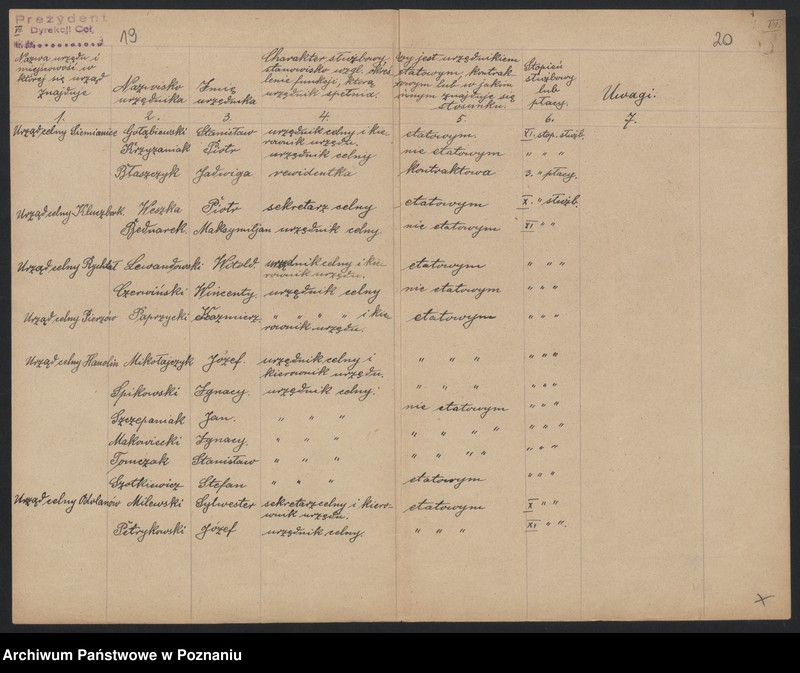 Prezydent
Dyrekcji Ceł
19
20
Nazwa urzędu i
miejscowości w
której się urząd
znajduje
Nazwisko
urzędnika
Imię
urzędnika
Charakter służbowy,
stanowisko wzgl. określenie funkcji, którą
urzędnik spełnia.
czy jest urzędnikiem
etatowym, kontraktowym lub w jakim
innym znajduje się
stosunku.
Stopień
służbowy
lub
płacy.
Uwagi.
1. 2. 3. 4. 5. 6. 7.
Urząd celny Siemianice Gołąbiewski Stanisław urzędnik celny i kierownik urzędu. etatowym XI. stop. służb.
Krzyżaniak Piotr urzędnik celny nie etatowym " " "
Błaszczyk Jadwiga rewidentka kontraktowa 3. " płacy.
Urząd celny Kluczbork. Weszka Piotr sekretarz celny etatowym X. " służb.
Bednarek. Maksymiljan urzędnik celny nie etatowym XI " "
Urząd celny Rychtal Lewandowski Witold. urzędnik celny i kierownik urzędu. etatowym " " "
Czerwiński Wincenty. urzędnik celny nie etatowym " " "
Urząd celny Pierzów Paprzycki Kazimierz " " " " i kierownik urzędu. etatowym " " "
Urząd celny Hanolin Mikołajczyk Józef. urzędnik celny i kierownik urzędu. " " " " " "
Spikowski Ignacy. urzędnik celny. " " " " " "
Szczepaniak Jan. " " " nie etatowym " " "
Makowiecki Ignacy. " " " " " " " " " "
Tomczak Stanisław " " " " " " " " " "
Szotkiewicz Stefan " " " etatowym " " "
Urząd celny Odolanów Milewski Sylwester sekretarz celny i kierownik urzędu. etatowym X " "
Petrykowski Józef urzędnik celny " " " XI " ".
Archiwum Państwowe w Poznaniu